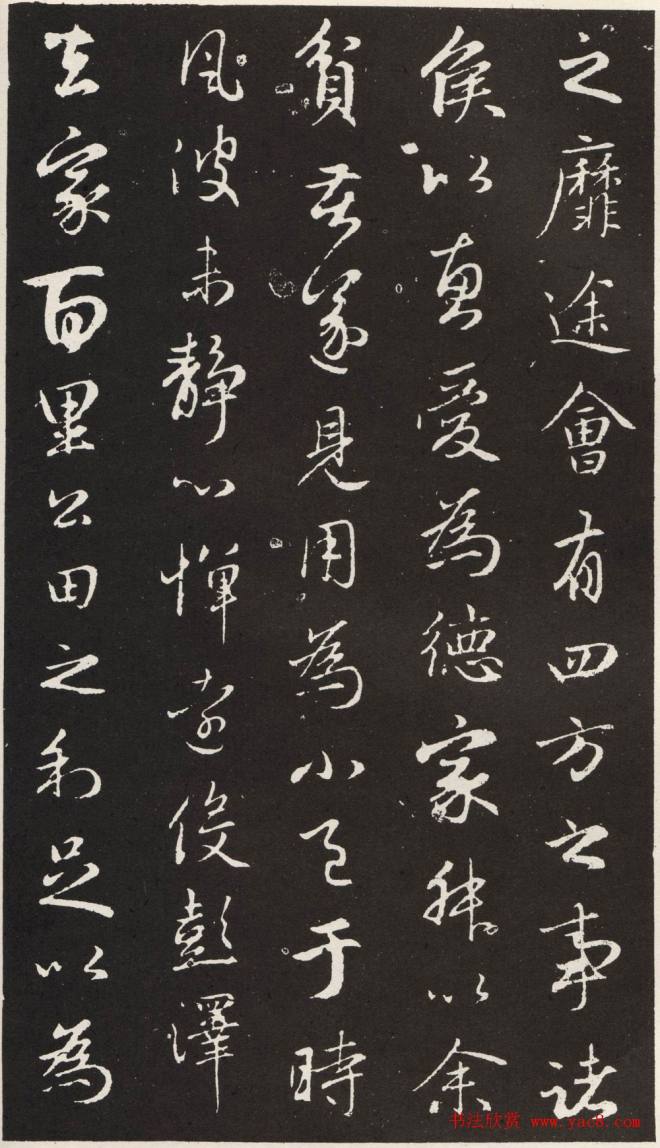 之靡途會有四方之事諸
侯以惠愛為德家叔以余
貧苦遂見用為小邑于時
風波未静心憚遠役彭澤
去家百里公田之利足以為
书法欣赏 www.yac8.com